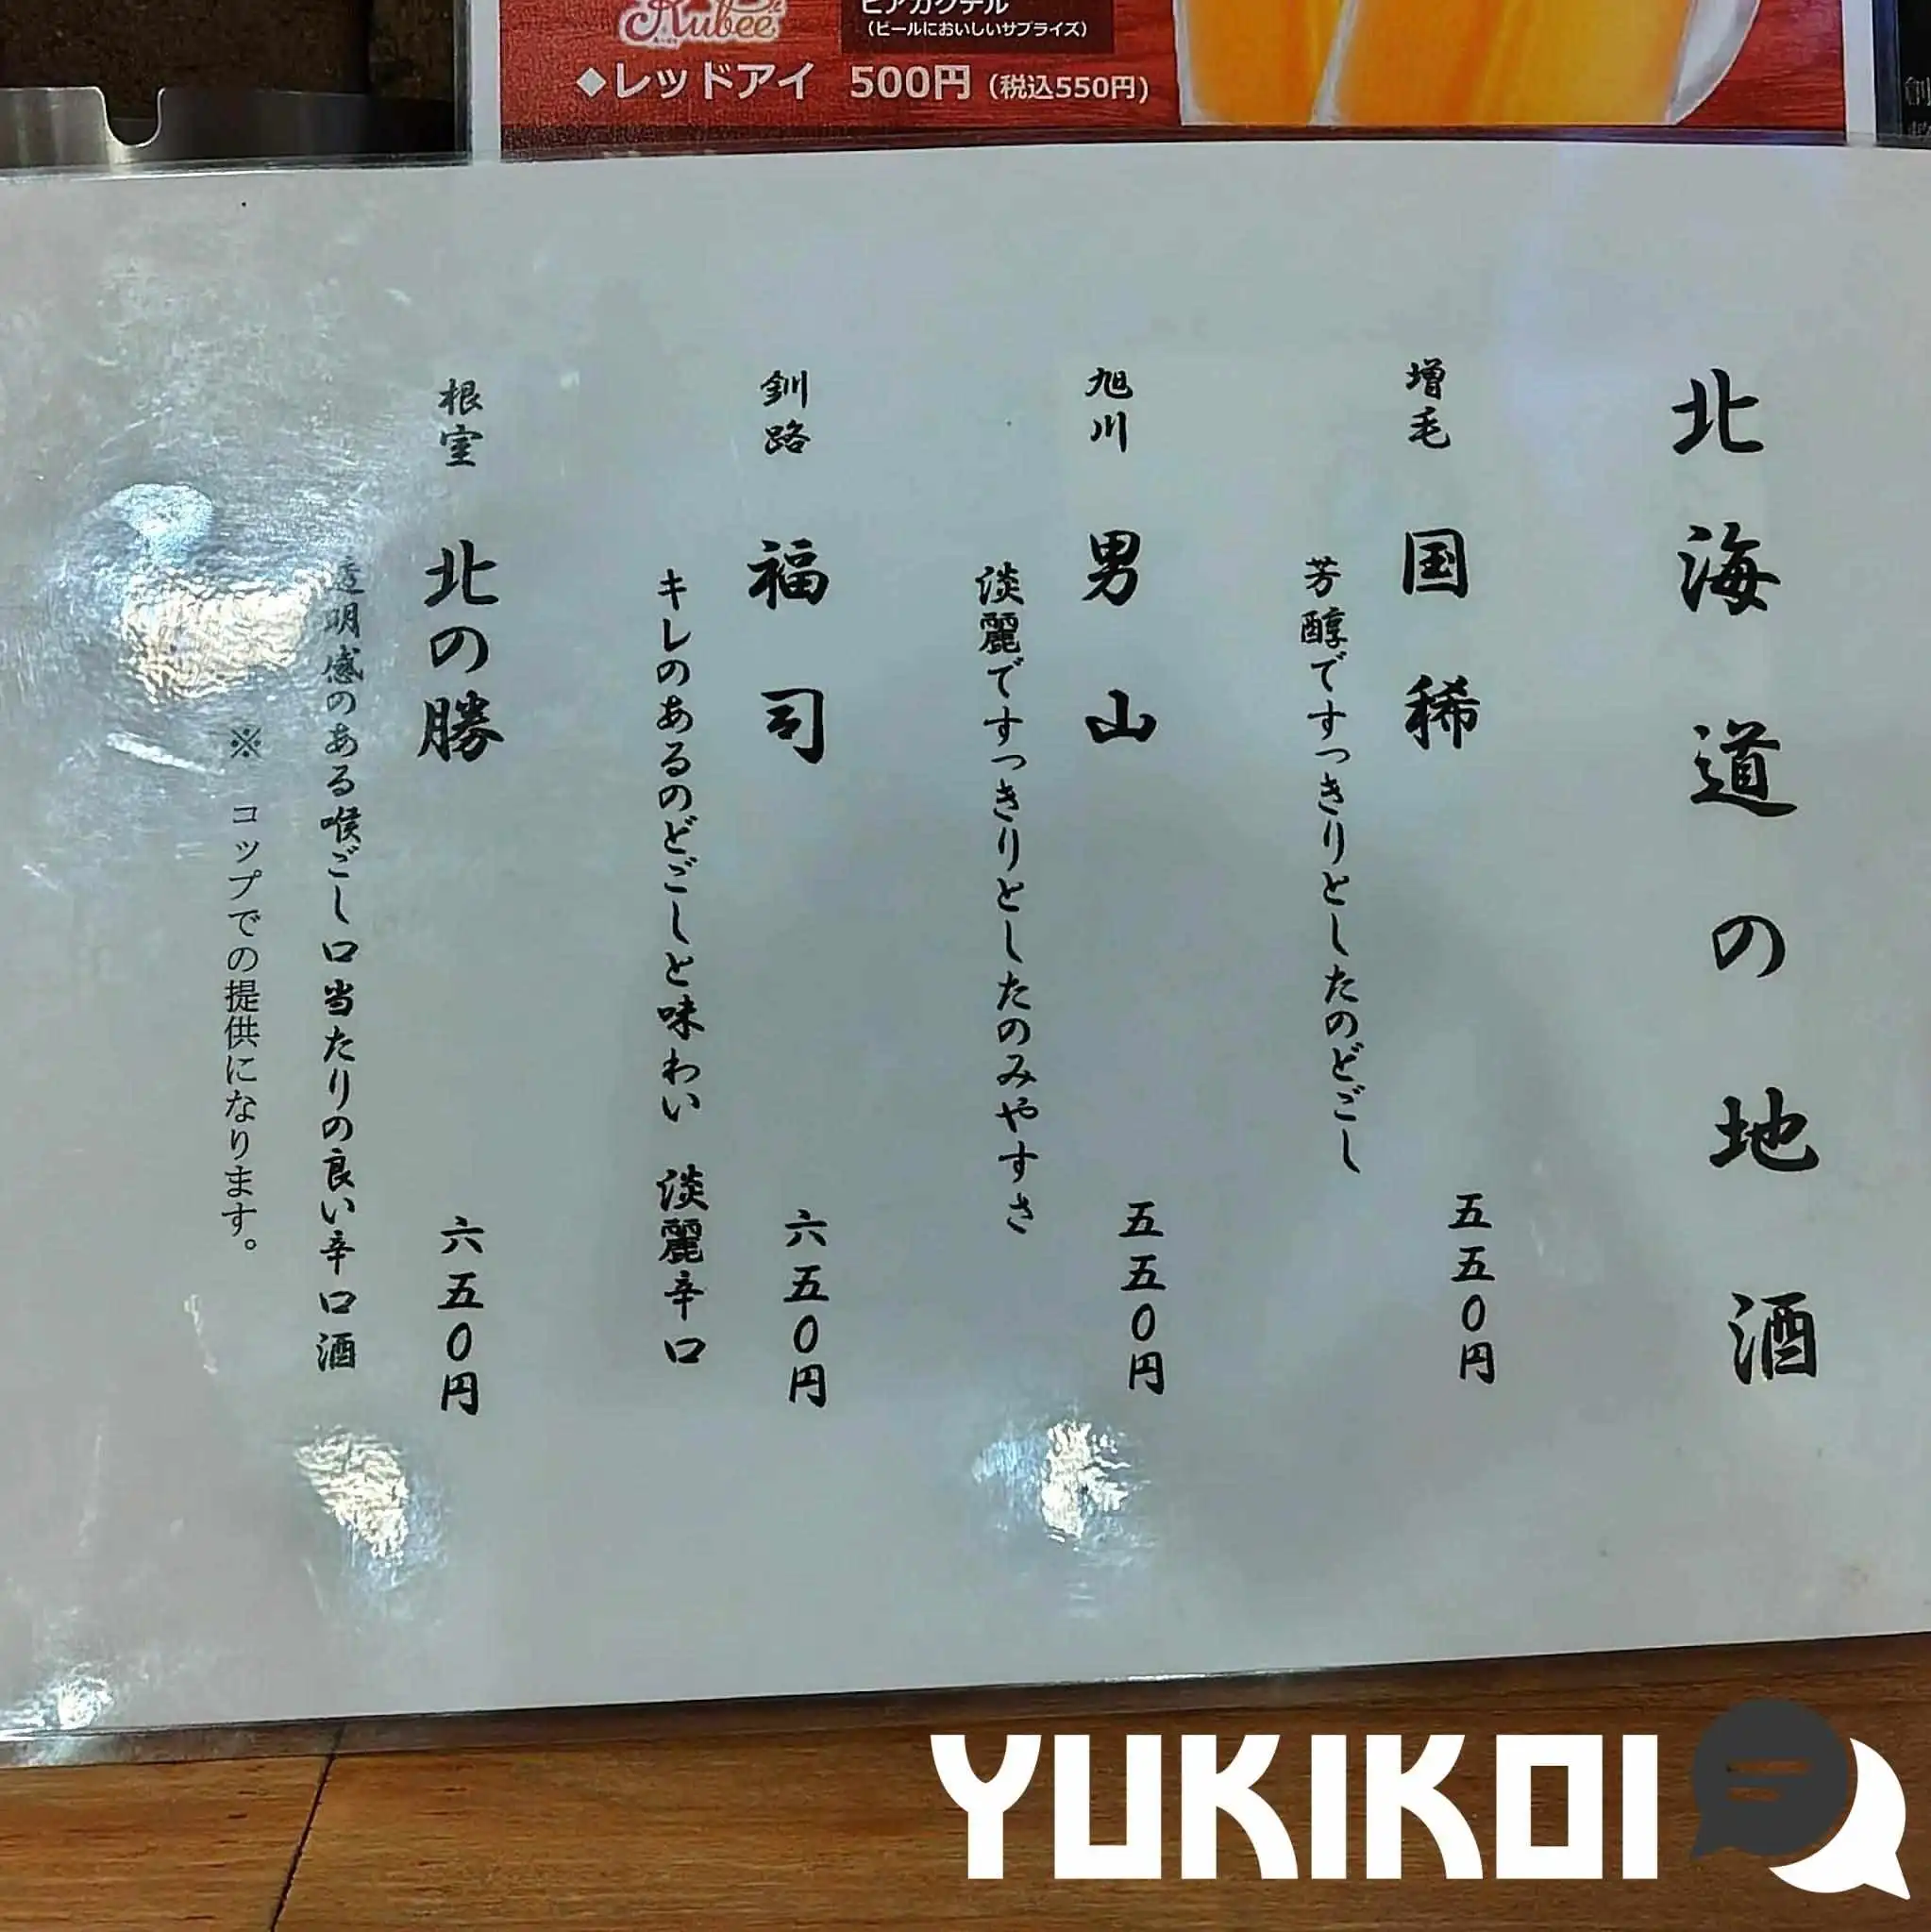 Rubee
ビアカクテル
(ビールにおいしいサプライズ)
◆レッドアイ 500円(税込550円)
北海道の地酒
増毛 国稀 五五〇円
芳醇ですっきりとしたのどごし
旭川 男山 五五〇円
淡麗ですっきりとしたのみやすさ
釧路 福司 六五〇円
キレのあるのどごしと味わい 淡麗辛口
根室 北の勝 六五〇円
透明感のある喉ごし口当たりの良い辛口酒
※ コップでの提供になります。
YUKIKOI